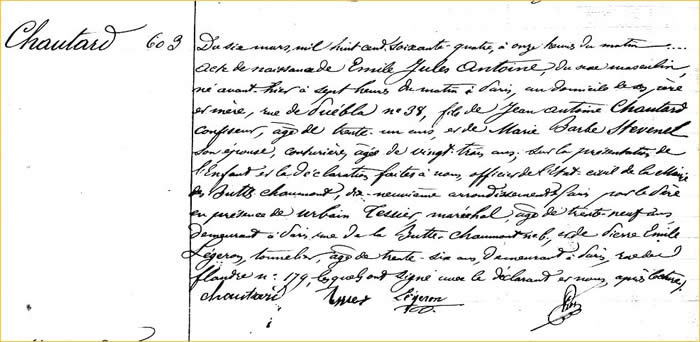 Chautard 603
Du six mars, mil huit cent soixante-quatre, à onze heures du matin....
acte de naissance de Emile Jules Antoine, du sexe masculin,
né avant hier à sept heures du matin à Paris, au domicile de ses père
et mère, rue de Puébla n° 38, fils de Jean Antoine Chautard
confiseur, âgé de trente-un ans, et de Marie Barbe Stevenel
son épouse, couturière, âgée de vingt-trois ans; sur la présentation de
l'Enfant et la déclaration faites à nous, officier de l'état civil de la Mairie
des Buttes Chaumont, dix-neuvième arrondissement de Paris par le Père
en présence de Urbain Tessier, maréchal, âgé de trente-neuf ans
demeurant à Paris, rue de la Butte-Chaumont n° 6, et de Pierre Emile
Légeron, tonnelier, âgé de trente-six ans, demeurant à Paris, rue de
flandre n° 179, lesquels ont signé avec le déclarant et nous, après lecture,
chautard Tessier Légeron